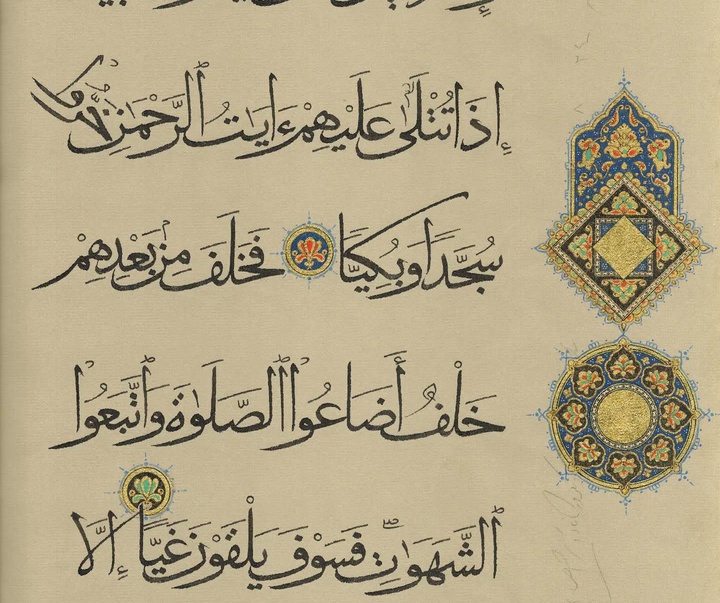 إِذَا تُتْلَىٰ عَلَيْهِمْ ءَايَٰتُ ٱلرَّحْمَٰنِ خَرُّوا
سُجَّدًا وَبُكِيًّا فَخَلَفَ مِنۢ بَعْدِهِمْ
خَلْفٌ أَضَاعُوا۟ ٱلصَّلَوٰةَ وَٱتَّبَعُوا۟
ٱلشَّهَوَٰتِ فَسَوْفَ يَلْقَوْنَ غَيًّا إِلَّا